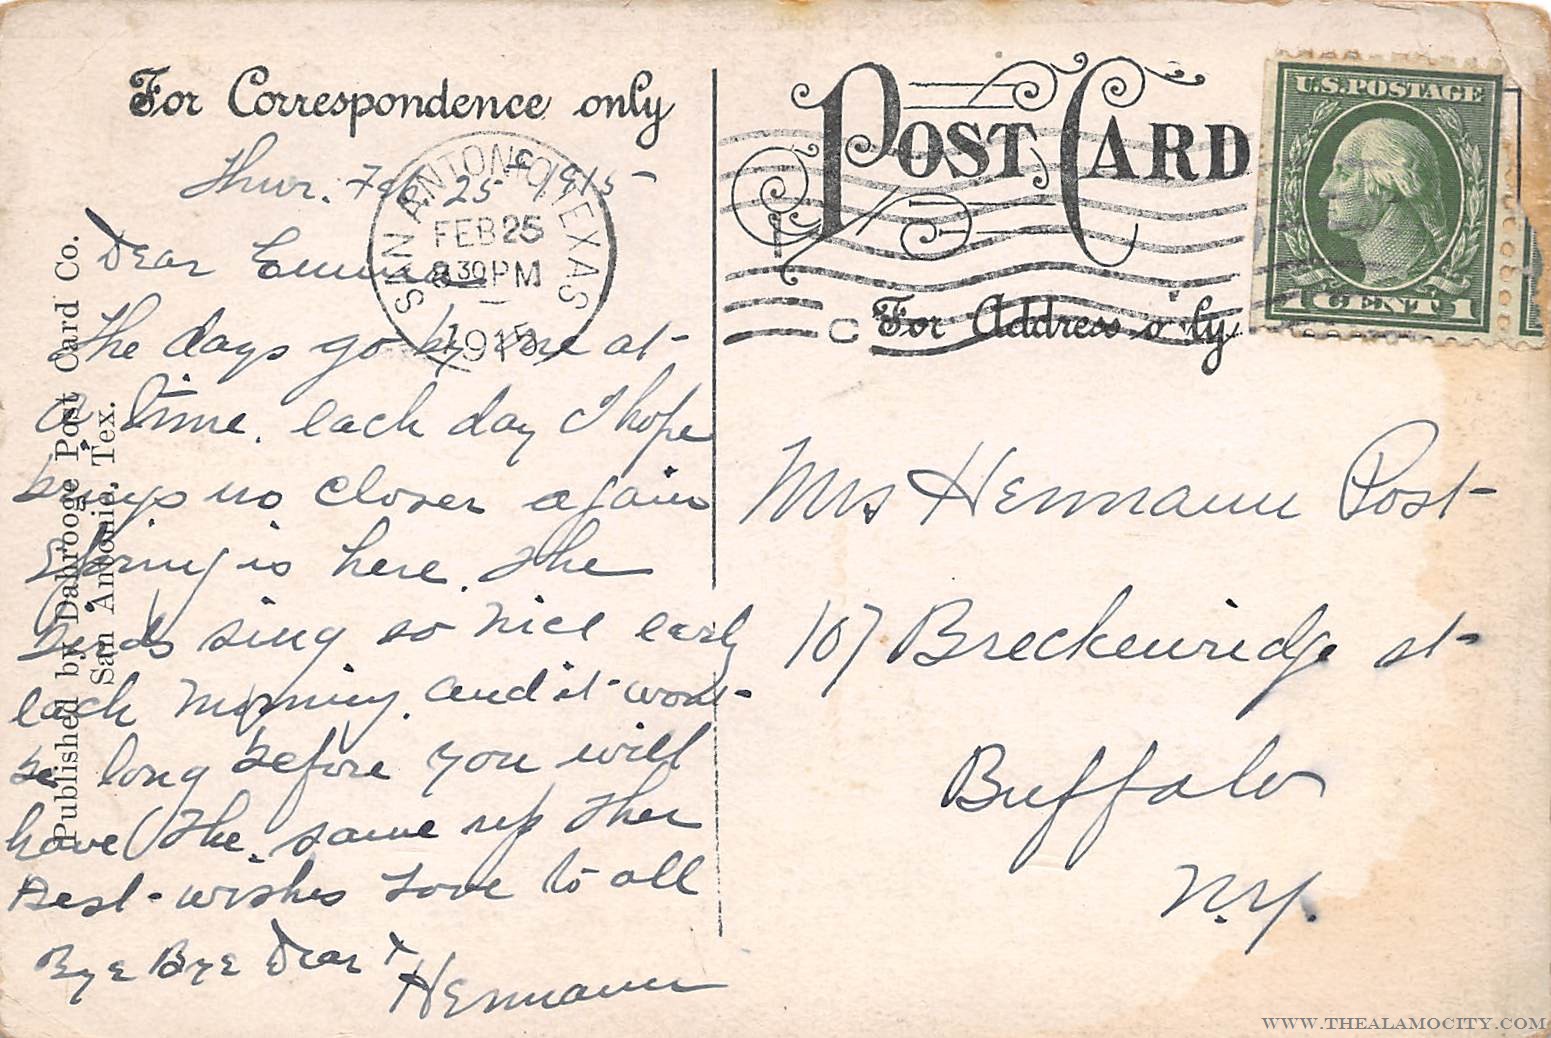 For Correspondence only
Thur. Feb 25 1915
Dear Emma
The days go by one at
a time. each day I hope
brings us closer again
Spring is here. The
birds sing so nice early
each morning. and it wont
be long before you will
have the same up ther
Best wishes Love to all
Bye Bye Dear
Hermann
SAN ANTONIO, TEXAS
FEB 25
8 30 PM
1915
Published by Dabrooge Post Card Co.
San Antonio, Tex.
POST CARD
For Address only
U.S. POSTAGE
1 CENT 1
Mrs Hermann Post
107 Breckenridge st
Buffalo
N.Y.
WWW.THEALAMOCITY.COM